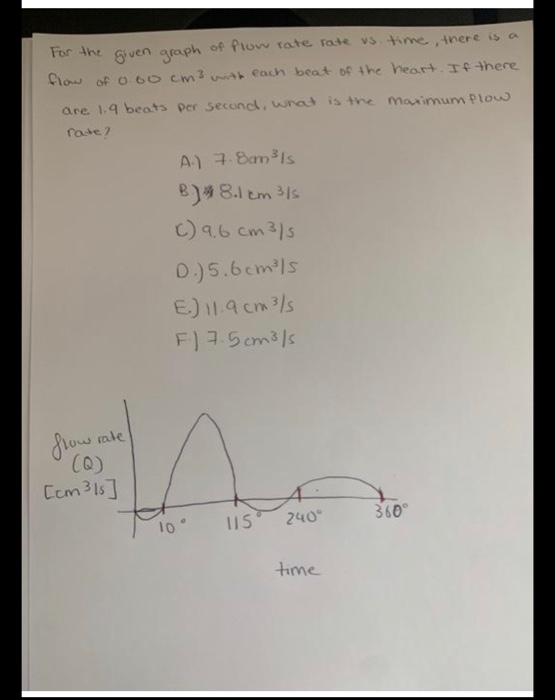 For the given graph of flow rate rate vs. time, there is a
flow of 0.60 cm³ with each beat of the heart. If there
are 1.9 beats per second, what is the maximum flow
rate?
A.) 7.8cm³/s
B.) 8.1cm³/s
C.) 9.6 cm³/s
D.) 5.6cm³/s
E.) 11.9cm³/s
F.) 7.5cm³/s
flow rate
(Q)
[cm³/s]
10° 115° 240° 360°
time